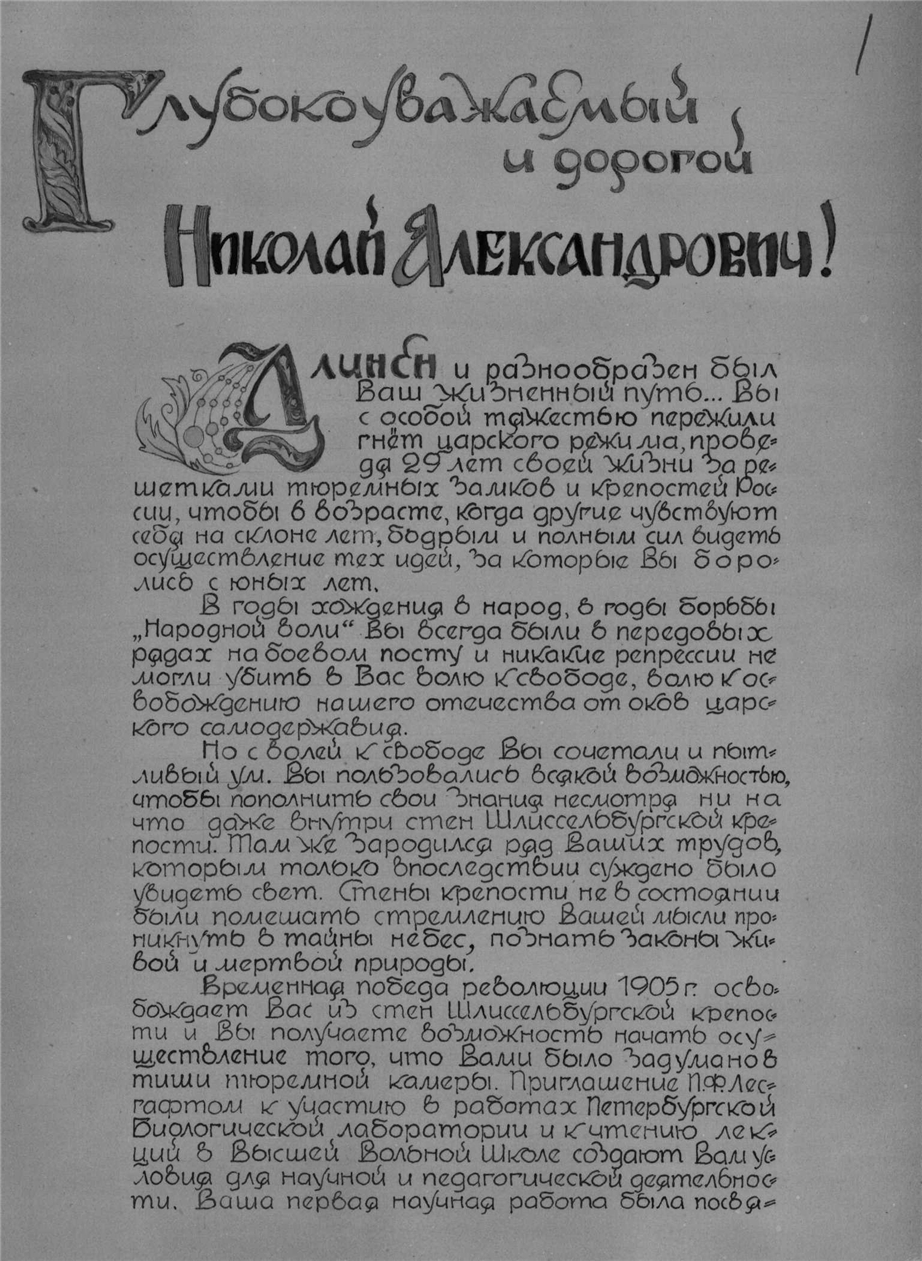 1
Глубокоуважаемый
и дорогой
Николай Александрович!
Длинен и разнообразен был
Ваш жизненный путь... Вы
с особой тяжестью пережили
гнёт царского режима, прове=
дя 29 лет своей жизни за ре=
шетками тюремных замков и крепостей Рос=
сии, чтобы в возрасте, когда другие чувствуют
себя на склоне лет, бодрым и полным сил видеть
осуществление тех идей, за которые Вы боро=
лись с юных лет.
В годы хождения в народ, в годы борьбы
„Народной воли“ Вы всегда были в передовых
рядах на боевом посту и никакие репрессии не
могли убить в Вас волю к свободе, волю к ос=
вобождению нашего отечества от оков царс=
кого самодержавия.
Но с волей к свободе Вы сочетали и пыт=
ливый ум. Вы пользовались всякой возможностью,
чтобы пополнить свои знания несмотря ни на
что даже внутри стен Шлиссельбургской кре=
пости. Там же зародился ряд Ваших трудов,
которым только впоследствии суждено было
увидеть свет. Стены крепости не в состоянии
были помешать стремлению Вашей мысли про=
никнуть в тайны небес, познать законы жи=
вой и мертвой природы.
Временная победа революции 1905 г. осво=
бождает Вас из стен Шлиссельбургской крепос=
ти и Вы получаете возможность начать осу=
ществление того, что Вами было задумано в
тиши тюремной камеры. Приглашение П.Ф. Лес=
гафтом к участию в работах Петербургской
Биологической лаборатории и к чтению лек=
ций в Высшей Вольной Школе создают Вам ус=
ловия для научной и педагогической деятельнос=
ти. Ваша первая научная работа была посвя=